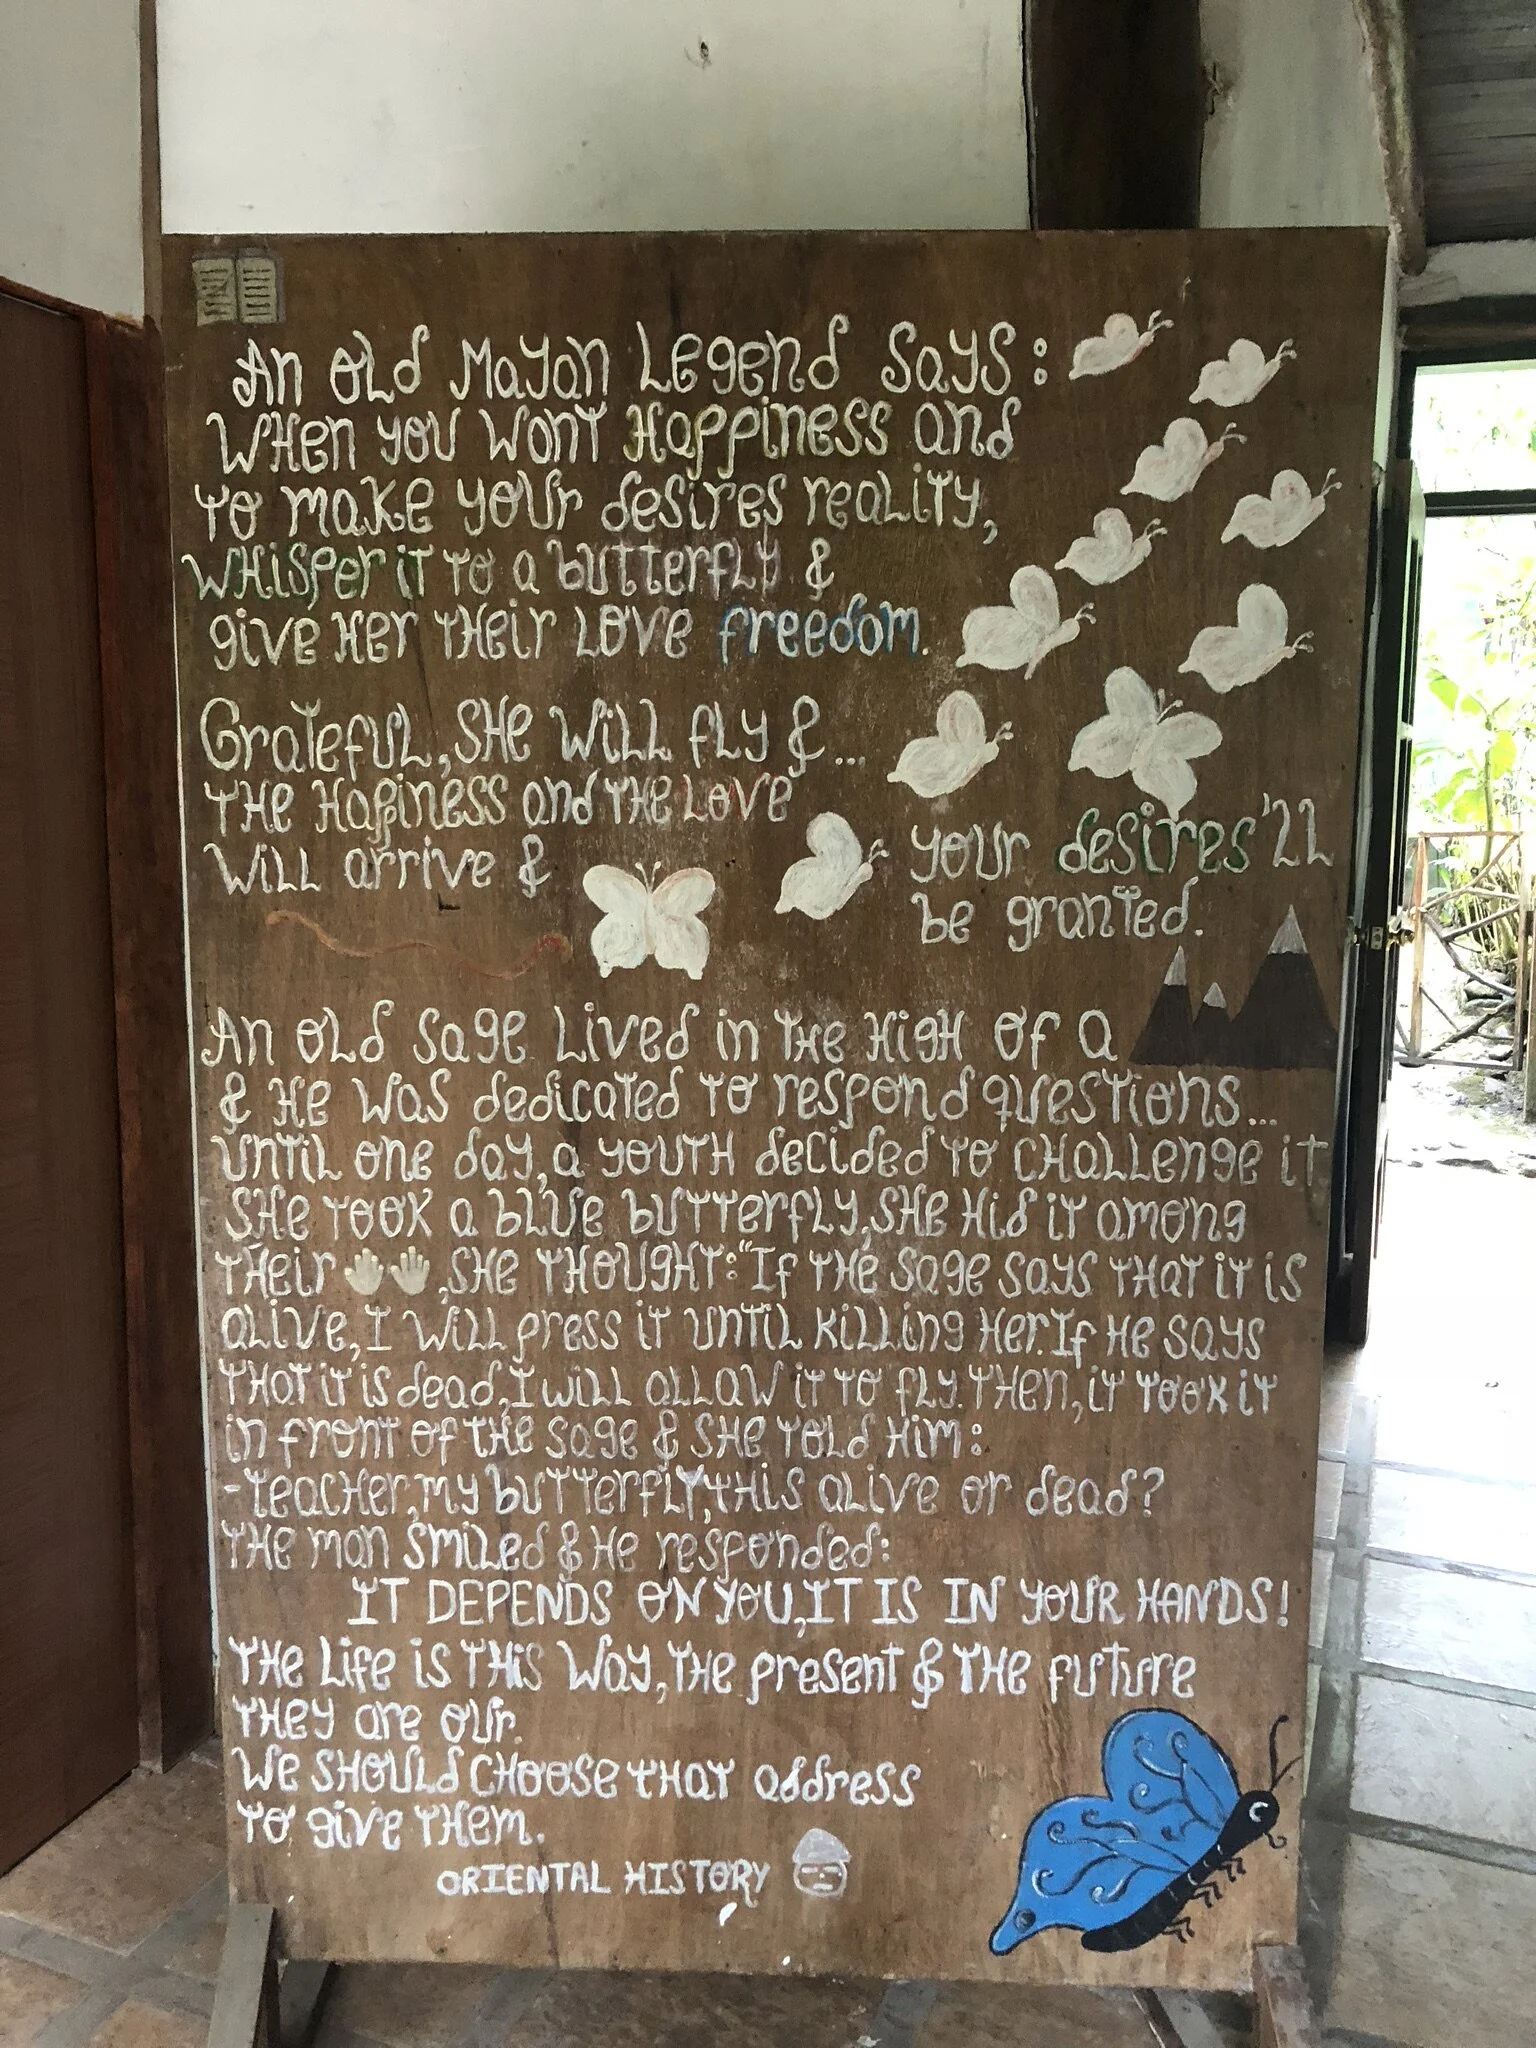 An old Mayan Legend says:
When you wont Happiness and
to make your desires reality,
whisper it to a butterfly &
give her their love freedom.
Grateful, she will fly & ...
the Happiness and the Love
will arrive &
your desires'll
be granted.
An old sage lived in the high of a
& he was dedicated to respond questions...
until one day, a youth decided to challenge it
she took a blue butterfly, she hid it among
their , she thought: "If the sage says that it is
alive, I will press it until killing her. If he says
that it is dead, I will allaw it to fly. Then, it took it
in front of the sage & she told him:
-teacher, my butterfly, this alive or dead?
The man smiled & he responded:
IT DEPENDS ON YOU, IT IS IN YOUR HANDS!
The life is this way, the present & the future
they are our.
We should choose that address
to give them.
ORIENTAL HISTORY